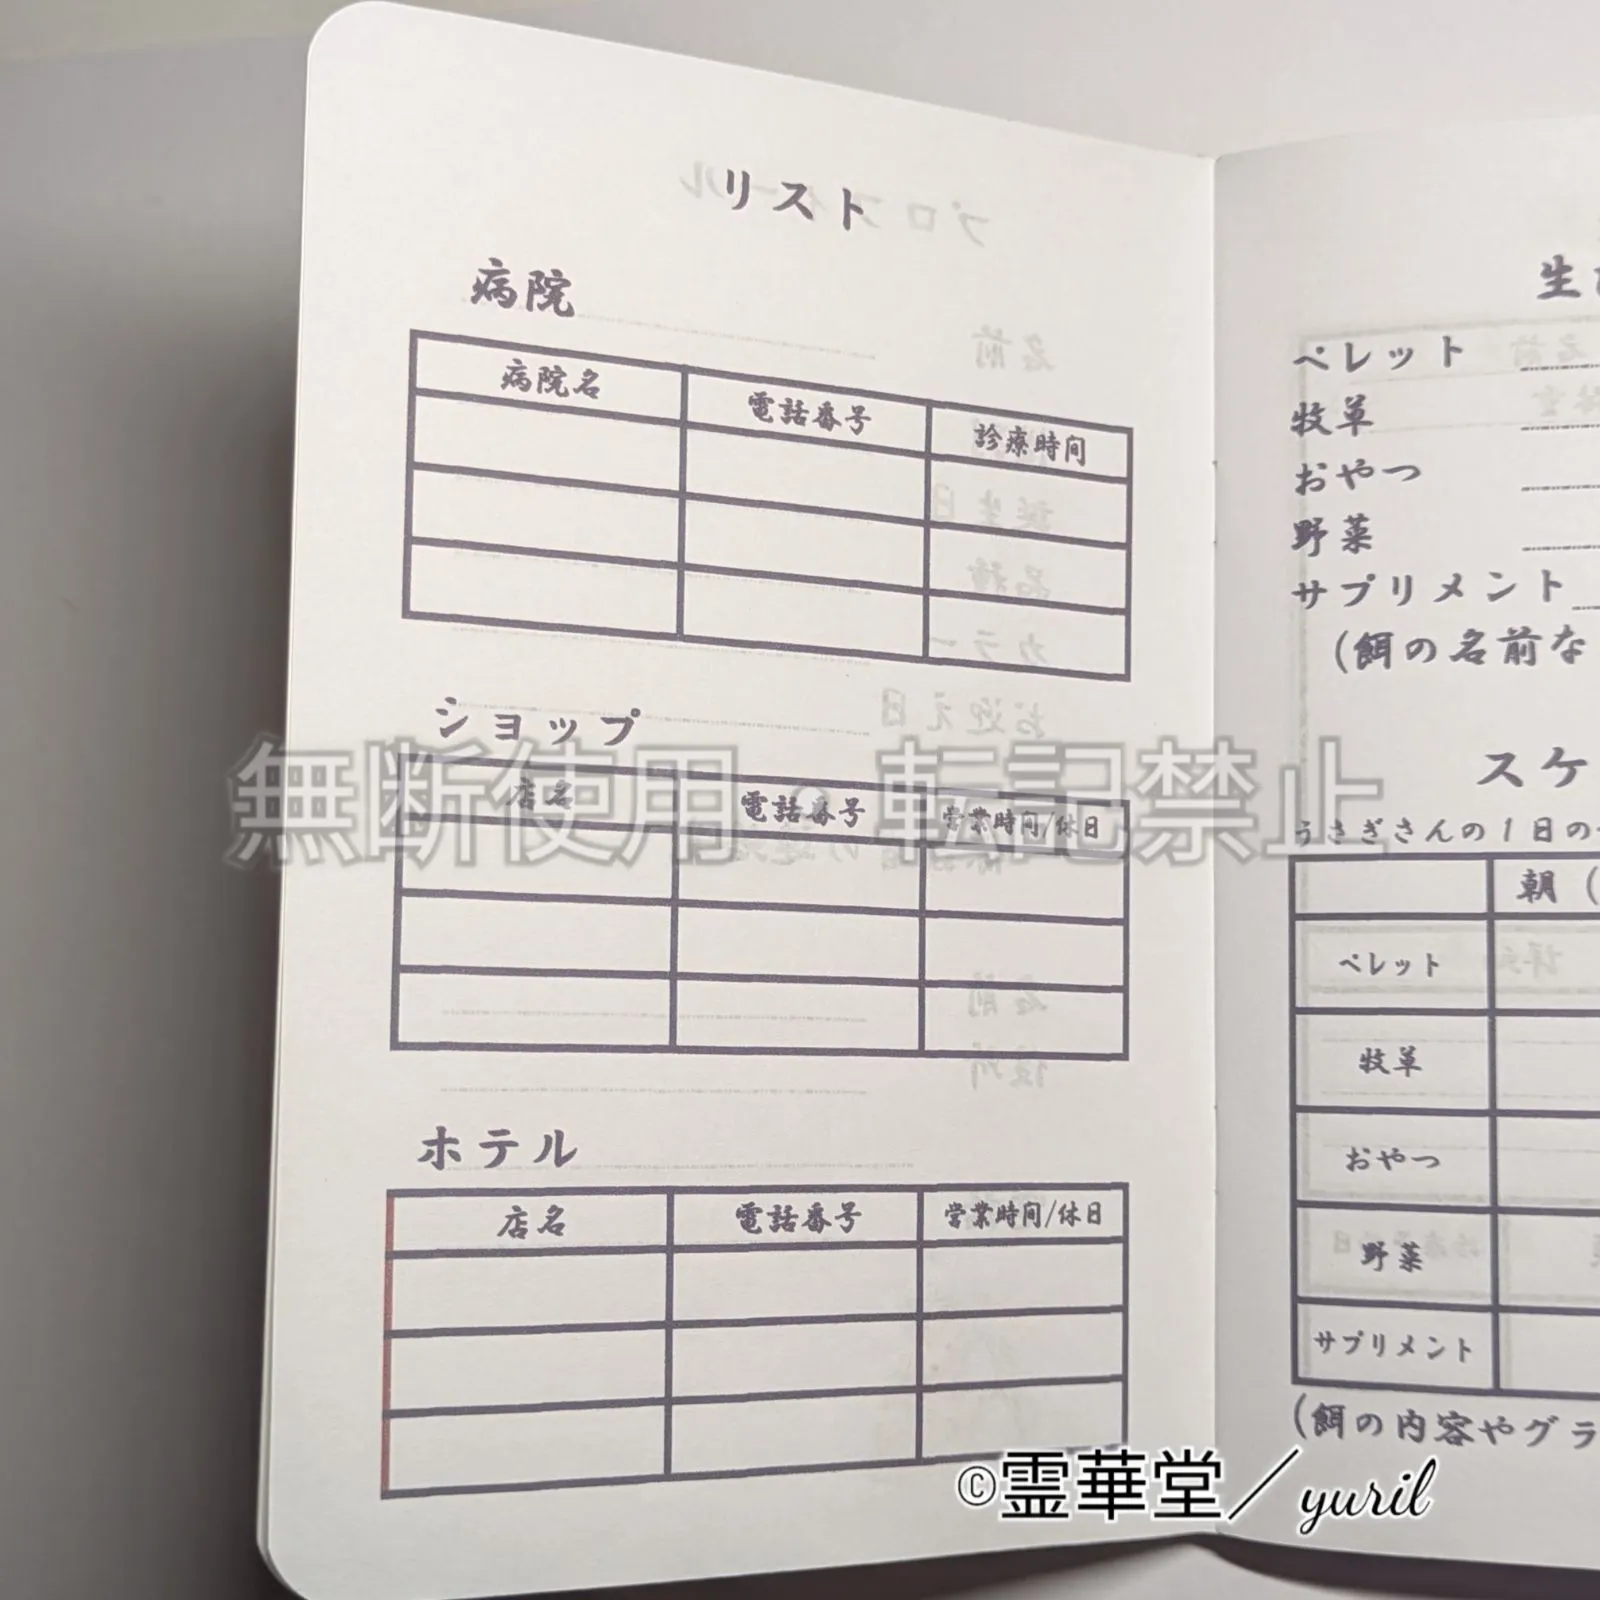 リスト
病院
病院名 電話番号 診療時間
ショップ
店名 電話番号 営業時間/休日
ホテル
店名 電話番号 営業時間/休日
ペレット
牧草
おやつ
野菜
サプリメント
(餌の名前な
スケ
うさぎさんの1日の
朝(
ペレット
牧草
おやつ
野菜
サプリメント
(餌の内容やグラ
無断使用・転記禁止
©霊華堂／yuril